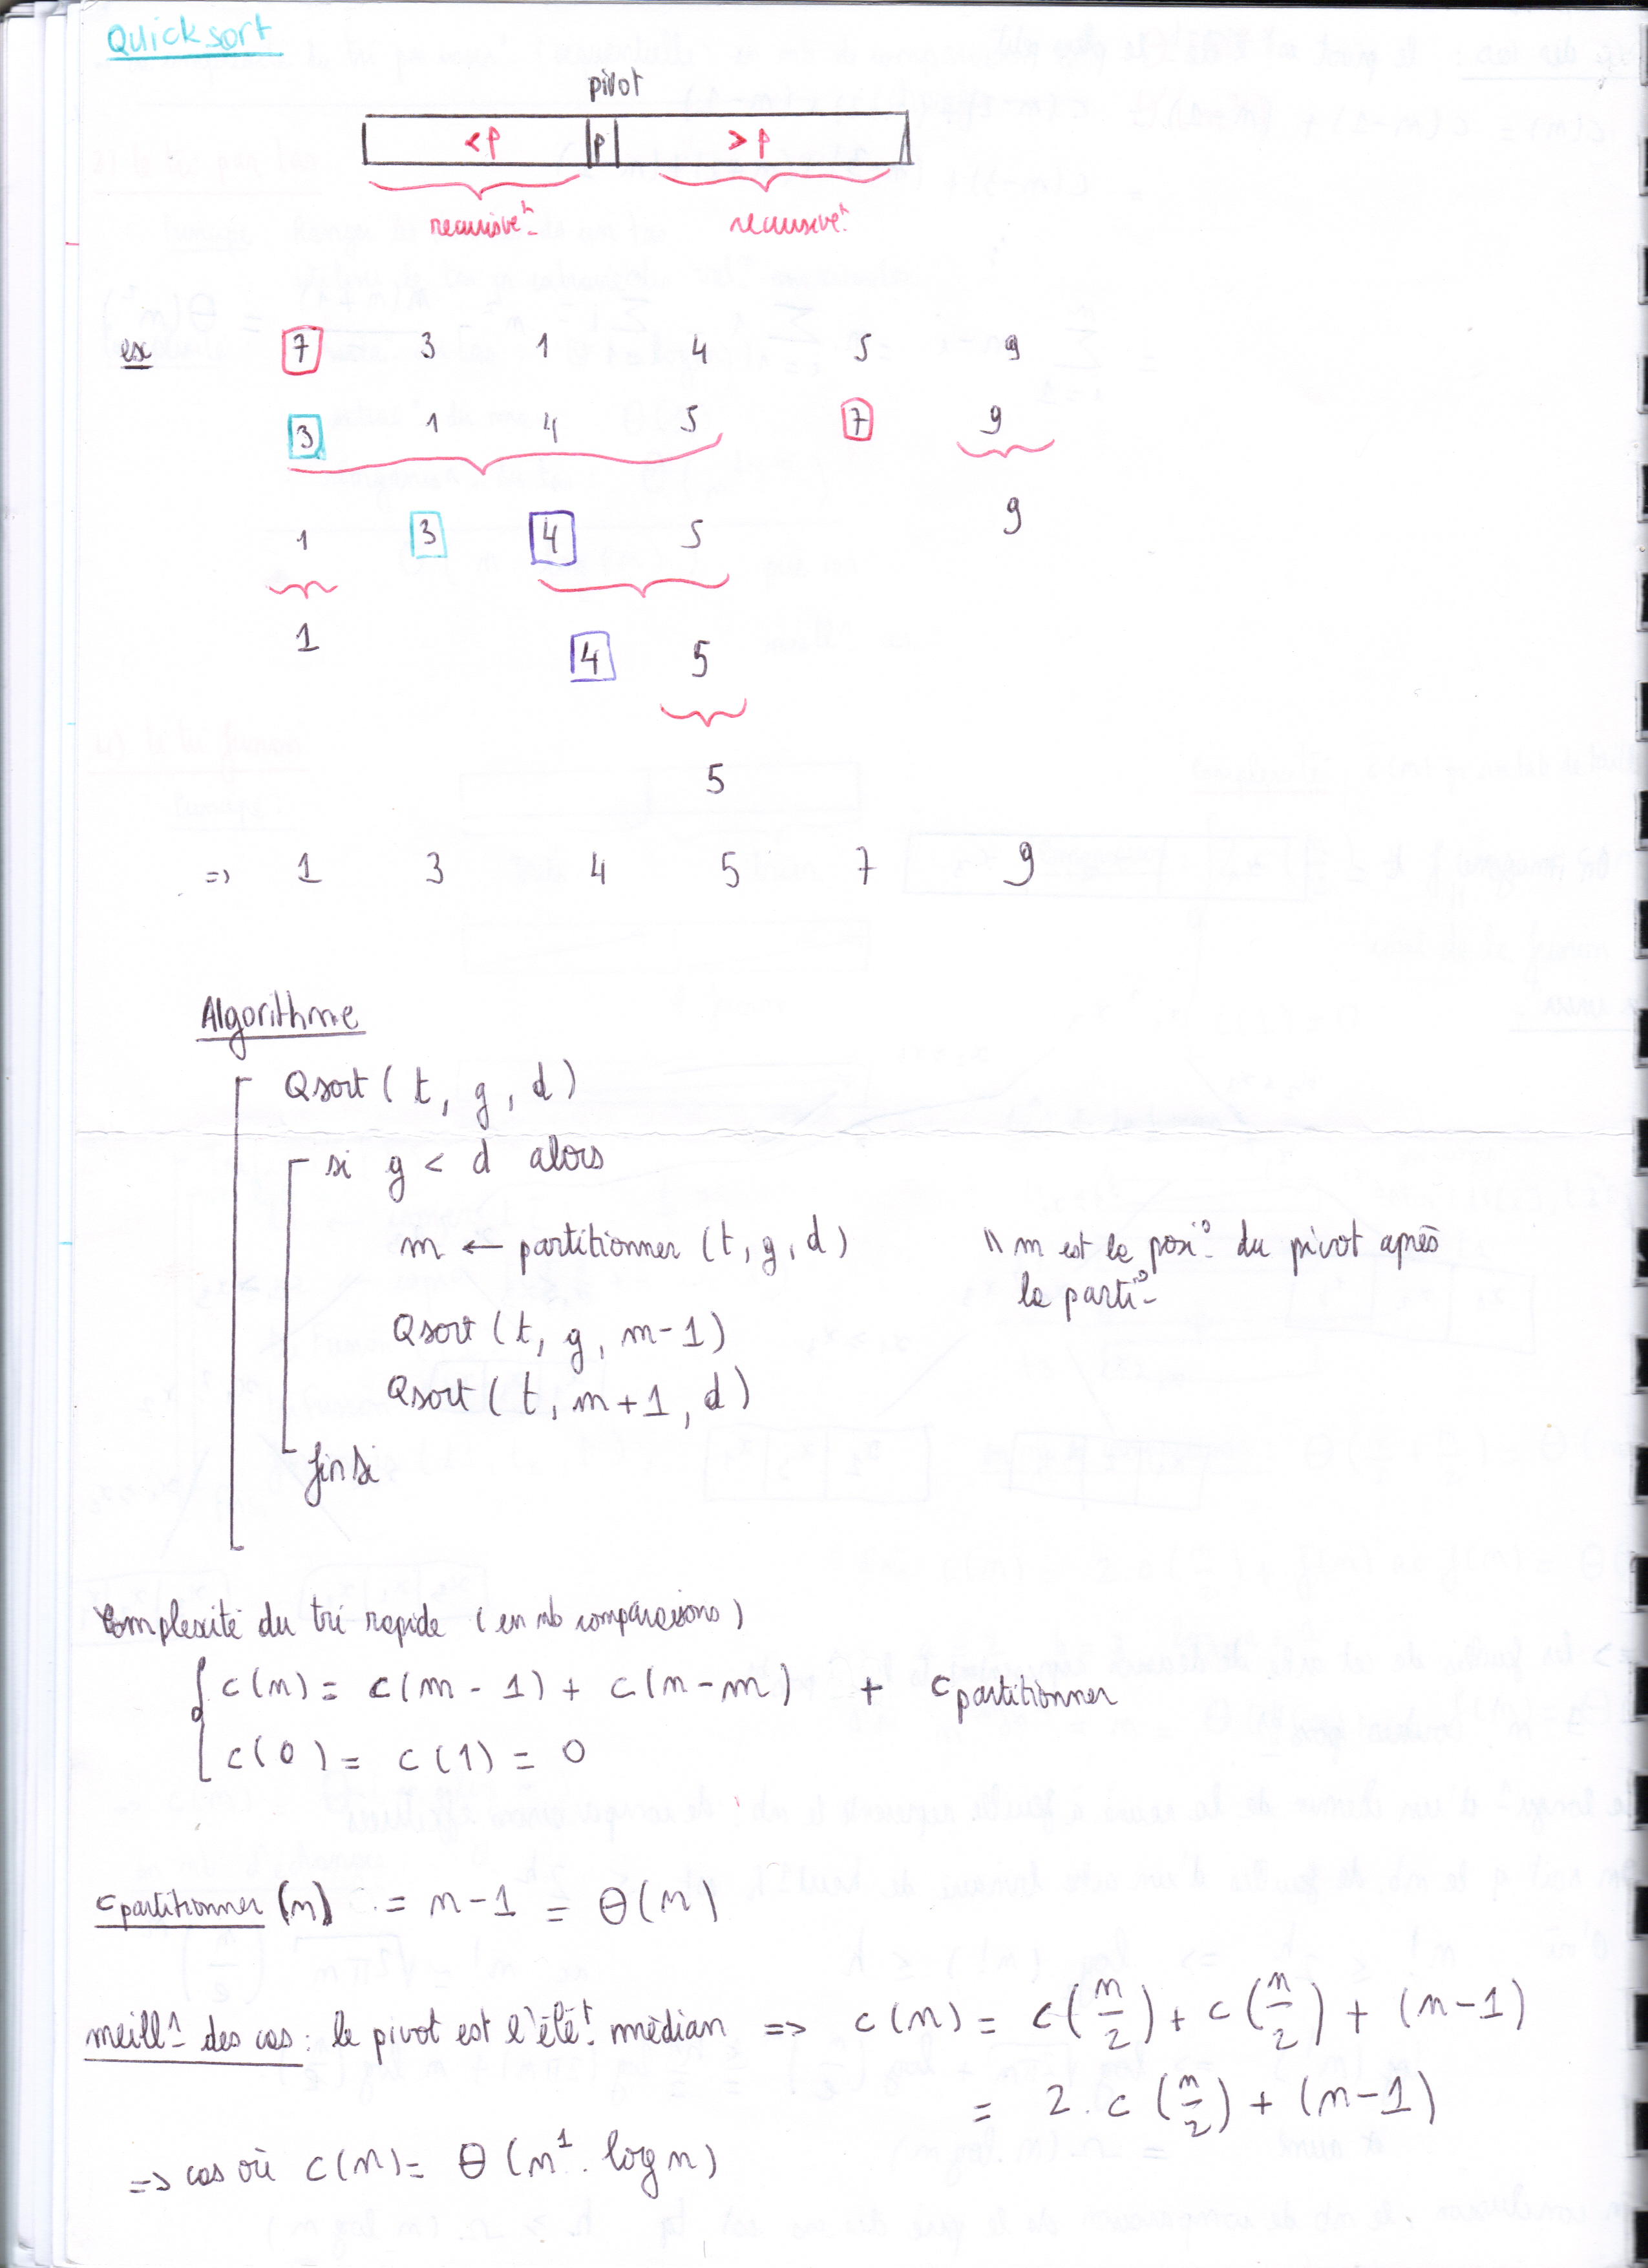 Quicksort
pivot
<p p >p
recursivet recursivet
ex 7 3 1 4 5 9
3 1 4 5 7 9
9
1 3 4 5
1
4 5
5
=> 1 3 4 5 7 9
Algorithme
Qsort (t, g, d)
si g < d alors
m ← partitionner (t, g, d) \\ m est la posio du pivot après
la partio
Qsort (t, g, m-1)
Qsort (t, m+1, d)
finsi
Complexité du tri rapide (en nb comparaisons)
c(n) = c(m-1) + c(n-m) + c partitionner
c(0) = c(1) = 0
c partitionner (n) = n-1 = Θ(n)
meillr des cas : le pivot est l'élét médian => c(n) = c(n/2) + c(n/2) + (n-1)
= 2 . c(n/2) + (n-1)
=> cas où c(n) = Θ(n¹ . log n)